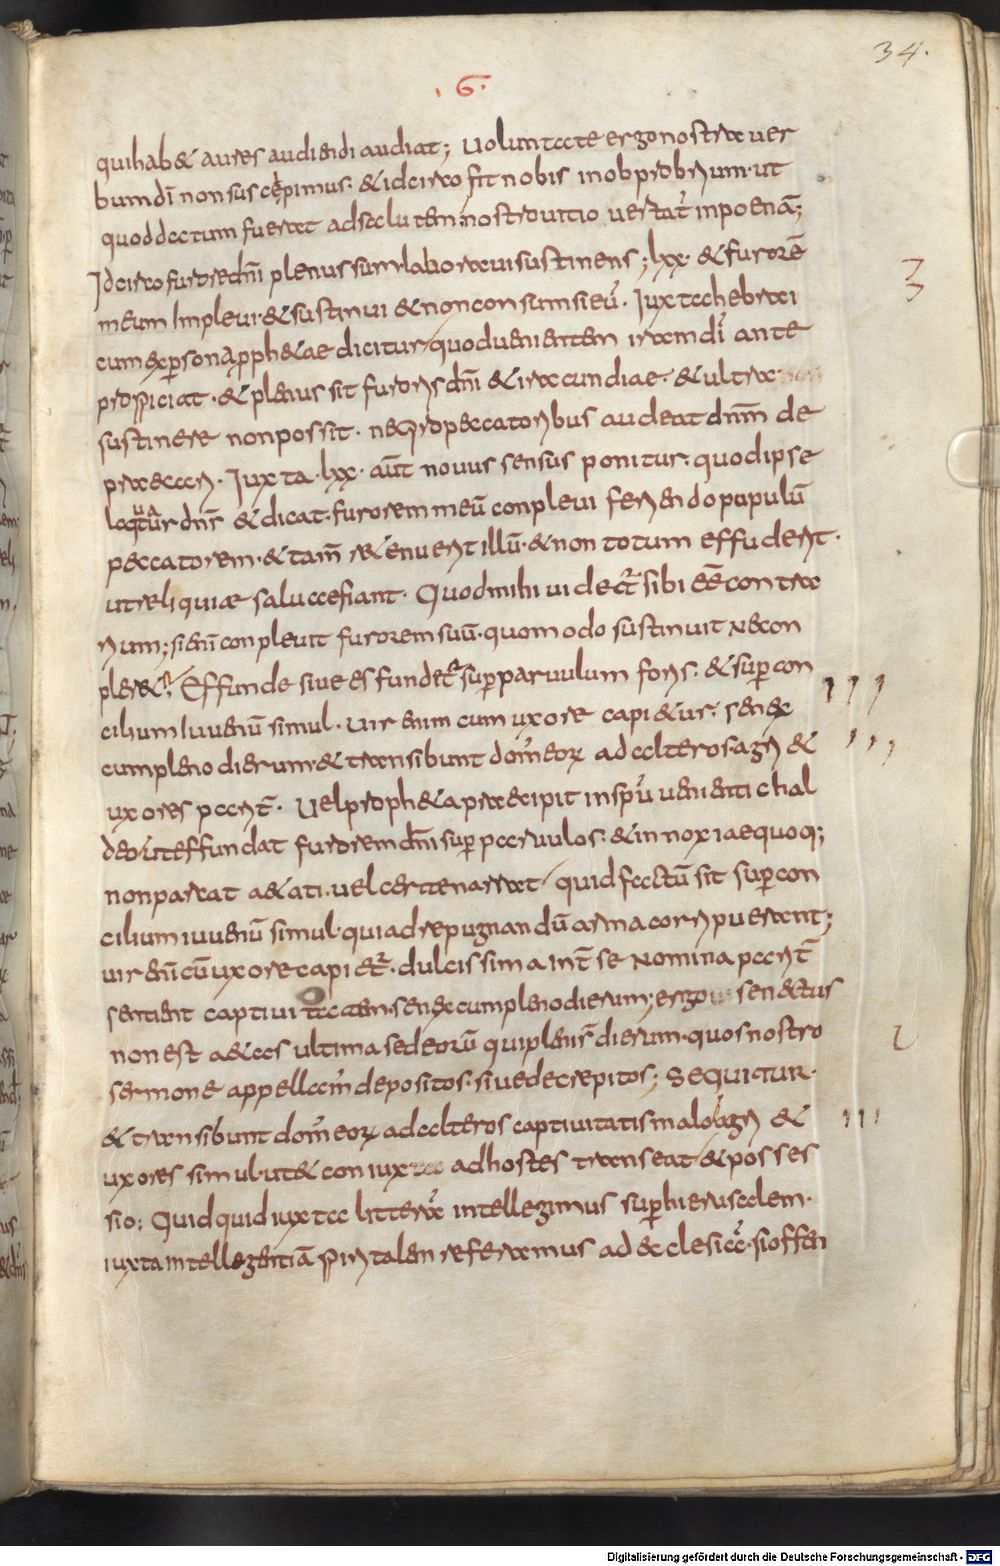 34.
. 6.
quihab& aures audiendi audiat; Voluntate ergo nostra ver
bum dī non suscępimus. & idcirco fit nobis in obprobrium. ut
quod datum fuerat ad salutem nostro vitio vertat' in poenā;
Idcirco furore dn̄i plenus sum laboravi sustinens; lxx. & furorē
meum Implevi. & sustinui & non consumsi eū. Iuxta hebraei
cum ex persona proph&ae dicitur quod venientem iram dī ante
prospiciat. & plenus sit furoris dn̄i & iracundiae. & ultra
sustinere non possit. neq; pro peccatoribus audeat dnm̄ de
praecari. Iuxta. lxx. aūt novus sensus ponitur. quod ipse
loquatur dn̄s & dicat. furorem meū conplevi feriendo populū
peccatorem. & tam̄ r&enuerit illū. & non totum effuderit.
ut reliquiae salvae fiant. Quod mihi videt' sibi eē contra
rium; si enī conplevit furorem suū. quomodo sustinuit Necon
pler&? Effunde sive effundet' sup parvulum foris. & sup con
cilium Iuvenū simul. Vir enim cum uxore capi&ur. senex
cum pleno dierum. & transibunt dom' eorꝝ ad alteros agri &
uxores parit̄. Vel proph&a praecipit inspū venienti chal
deo ut effundat furorem dn̄i sup parvulos. & innoxiae quoq;
non parcat a&ati. vel certe narrat quid factū sit sup con
cilium iuvenū simul. qui ad repugnandū arma corripuerant;
vir enī cū uxore capiet'. dulcissima int̄ se Nomina parit̄
sentient captivitatem. senex cum pleno dierum; ergo senectus
non est a&as ultima sed eorū qui pleni s̄ dierum. quos nostro
sermone appellam' depositos. sive decrepitos; SEQUITUR.
& transibunt dom' eorꝝ ad alteros captivitatis malo agri &
uxores simul. ut & coniux ad hostes transeat & posses
sio; Quidquid iuxta litterā intellegimus sup hierusalem.
iuxta intellegentiā spiritalem referamus ad ecclesiā. si offen
Digitalisierung gefördert durch die Deutsche Forschungsgemeinschaft - DFG